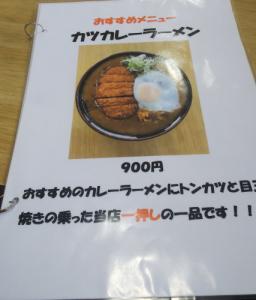 おすすめメニュー
カツカレーラーメン
900円
おすすめのカレーラーメンにトンカツと目玉
焼きの乗った当店一押しの一品です！！